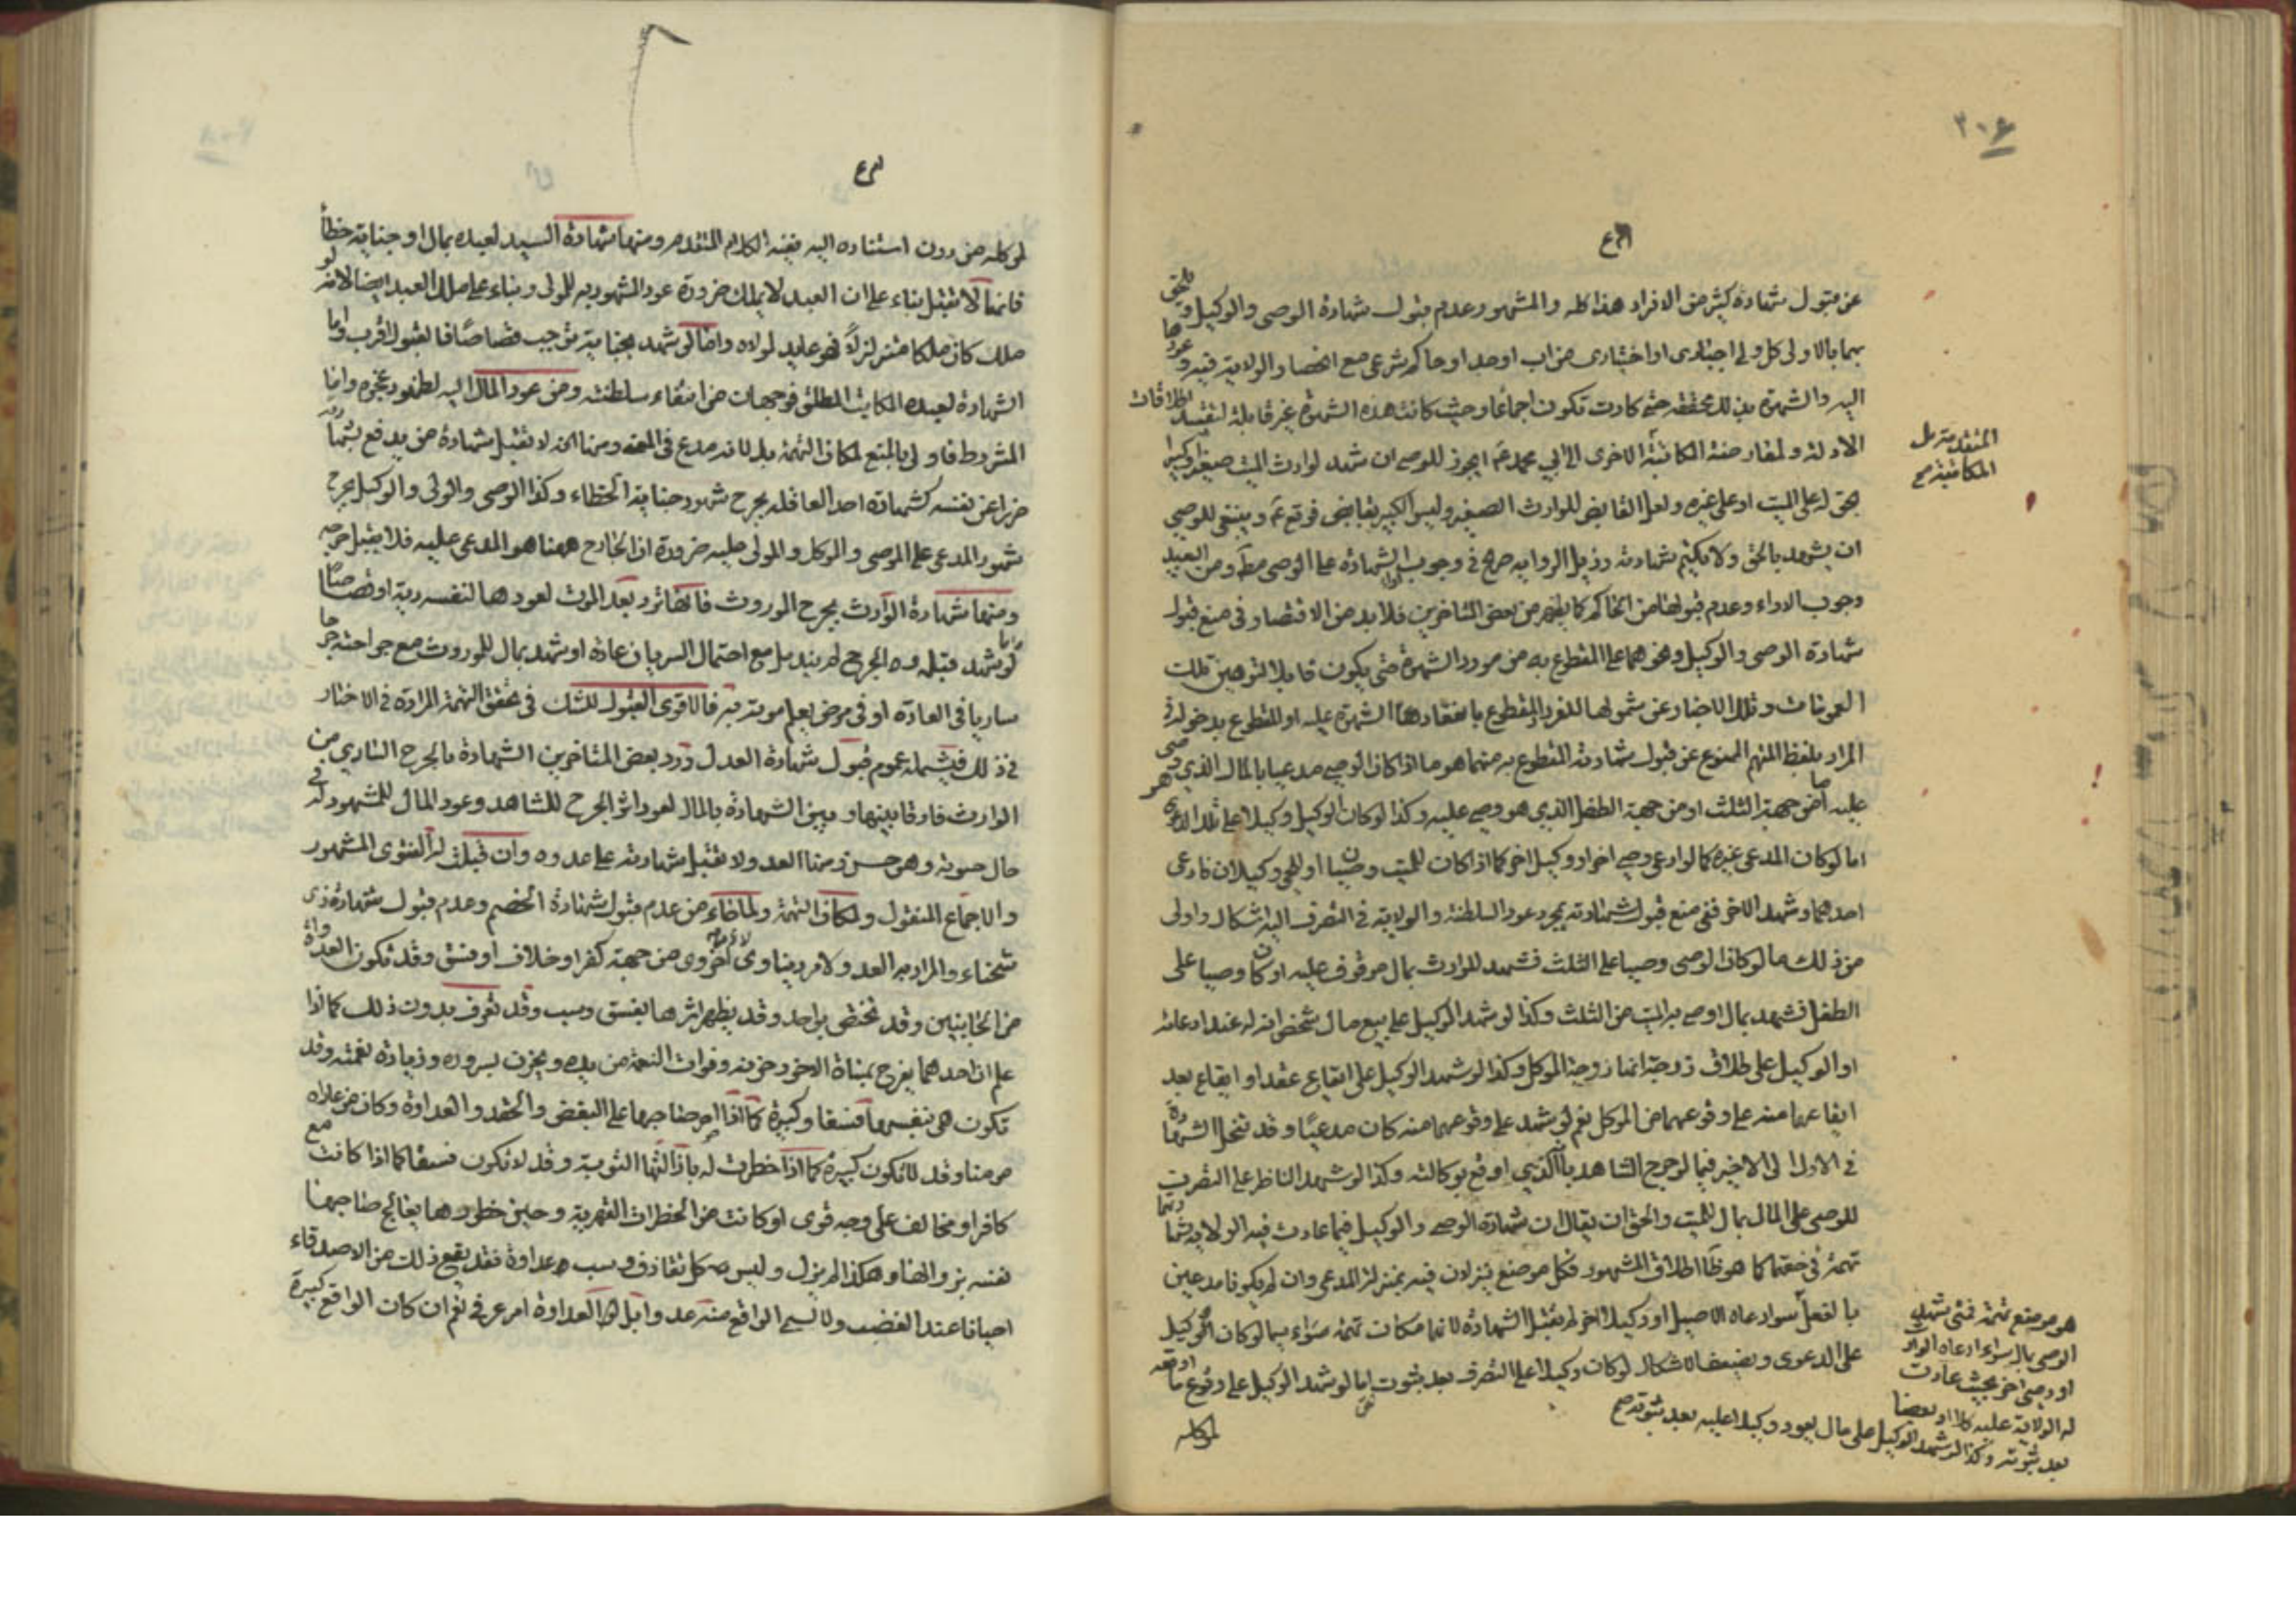 ٣٠٤
عن قبول شهادة كثير من الافراد هذا كله والمشهور وعدم قبول شهادة الوصي والوكيل
بهما بالاولى كل ولي اجباري او اختياري من اب او جد او حاكم شرعي مع الخصا والولاية فيه وعودها
اليه والشهرة بذلك محققة حتى كادت تكون اجماعا وحيث كانت هذه الشهرة غير قابلة لتقييد اطلاقات
الادلة ولمعارضته المكاتبة الاخرى الى ابي محمد ع ايجوز للوصي ان يشهد لوارث الميت صغيرا وكبيرا
المتقدمة بل
المكاتبة صح
بحق له على الميت او على غيره ولعل القابض للوارث الصغير وليس الكبير بقابض فوقع ع وينبغي للوصي
ان يشهد بالحق ولا يكتم شهادته وذيل الرواية صريح في وجوب الشهادة على الوصي مط ومن البعيد
وجوب الاداء وعدم قبولها من الحاكم كما يظهر من بعض المتاخرين فلا بد من الاقتصار في منع قبول
شهادة الوصي والوكيل ونحوهما على المقطوع به من مورد الشهرة حتى يكون قابلا لتوهين تلك
العمومات وتلك الاخبار عن شمولها للفرد المقطوع بانعقاد هذا الشهرة عليه او للمقطوع بدخوله في
المراد بلفظ المتهم الممنوع عن قبول شهادته المقطوع به منهما هو ما اذا كان الوصي مدعيا بالمال الذي هو
عليه اما من جهة الثلث او من جهة الطفل الذي هو وصي عليه وكذا لو كان الوكيل وكيلا على تلك الدعوى
اما لو كان المدعي غيره كما لو ادعى وصي اخر او وكيل اخر كما اذا كان للميت وصيان او للحي وكيلان فادعى
احدهما وشهد الاخر ففي منع قبول شهادته بمجرد عود السلطنة والولاية في التصرف اليه اشكال واولى
من ذلك ما لو كان الوصي وصيا على الثلث فشهد للوارث بمال موقوف عليه او كان وصيا على
الطفل فشهد بمال اوصى به الميت من الثلث وكذا لو شهد الوكيل على بيع مال شخص انه له عند ادعائه
او الوكيل على طلاق زوجة انها زوجة الموكل وكذا لو شهد الوكيل على ايقاع عقد او ايقاع بعد
ايقاعها منه على وقوعهما من الموكل نعم لو شهد على وقوعهما منه كان مدعيا وقد تنحل الشهادة
في الاول الى الاخير فيما لو جرح الشاهد بان الذي اوقع بوكالته وكذا لو شهد الناظر على التصرف
للوصي على المال بمال للميت والحق ان يقال ان شهادة الوصي والوكيل فيما عادت فيه الولاية
تهمة في حقهما كما هو ظاهر اطلاق المشهور فكل موضع ينزلان فيه بمنزلة المدعي وان لم يكونا مدعيين
بالفعل سواء ادعاه الاصيل او وكيل اخر لم تقبل الشهادة لانها مكان تهمة سواء بما لو كان الوكيل
على الدعوى ويضعف الاشكال لو كان وكيلا على التصرف بعد ثبوت اما لو شهد الوكيل على وقوع ما اوقعه
هو موضع تهمة فمتى شهد
الوصي بمال سواء ادعاه الوارث
او وصي اخر بحيث عادت
له الولاية عليه كلا او بعضا
بعد ثبوته وكذا لو شهد الوكيل على مال يعود وكيلا عليه بعد ثبوته صح
لموكله
لموكله من دون استناده اليه ففيه الكلام المتقدم ومنها شهادة السيد لعبده بمال او جناية خطأ
فانها لا تقبل بناء على ان العبد لا يملك ضرورة عود المشهود به للمولى وبناء على ملك العبد ايضا لانه لو
ملك كان ملكا متزلزلا فهو عايد لمولاه واما لو شهد بجناية توجب قصاصا فالقبول اقرب واما
الشهادة لعبده المكاتب المطلق فوجهان من انتفاء سلطنته ومن عود المال اليه لظهور عجزه واما
المشروط فاولى بالمنع لمكان التهمة بل لانه مدع في المعنى ومنها انه لا تقبل شهادة من يدفع بشهادته
ضررا عن نفسه كشهادة احد العاقلة بجرح شهود جناية الخطاء وكذا الوصي والولي والوكيل بجرح
شهود المدعي على الموصي والموكل والمولى عليه ضرورة ان الجارح ههنا هو المدعى عليه فلا يقبل جرحه
ومنها شهادة الوارث بجرح الموروث فانها ترد بعد الموت لعودها لنفسه دية او قصاصا
لو شهد قبله والجرح لم يندمل مع احتمال السريان عادة او شهد بمال للموروث مع جراحته جرحا
ساريا في العادة او في مرض يعلم موته به فالاقوى القبول للشك في تحقق التهمة المرادة في الاخبار
في ذلك فيشمله عموم قبول شهادة العدل ورد بعض المتاخرين الشهادة بالجرح الساري من
الوارث فارقا بينها وبين الشهادة بالمال لعود اثر الجرح للشاهد وعود المال للمشهود له في
حال حيوته وهو حسن ومنها العدو لا تقبل شهادته على عدوه وان قبلت له للفتوى المشهور
والاجماع المنقول ولمكان التهمة ولما جاء من عدم قبول شهادة الخصم وعدم قبول شهادة ذي
شحناء والمراد به العدو لامر دنياوي لا اخروي من جهة كفر او خلاف او فسق وقد تكون العداوة
من الجانبين وقد تختص بواحد وقد يظهر اثرها بفسق وسب وقد تعرف بدون ذلك كما اذا
علم ان احدهما يفرح بمساة الاخر وحزنه وفوات النعمة من يده ويحزن بسروره وزيادة نعمته وقد
تكون هي بنفسها فسقا وكبيرة كما اذا اصر صاحبها على البغض والحقد والعداوة وكان من عاداه
مومنا وقد لا تكون كبيرة كما اذا خطرت له باذالتها التوبة وقد لا تكون فسقا كما اذا كانت مع
كافر او مخالف على وجه قوي او كانت من الخطرات القهرية وحين خطورها يعالج صاحبها
نفسه بزوالها وهكذا لم يزل وليس كل تقاذف وسب عداوة فقد يقع ذلك من الاصدقاء
احيانا عند الغضب ولا يسمى الواقع منه عدوا بل العداوة امر عرفي نعم ان كان الواقع كبيرة